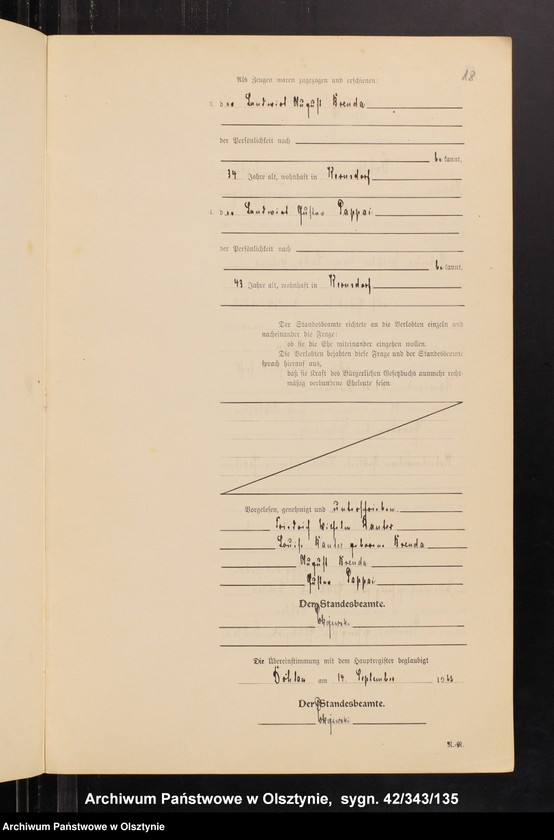 18
Als Zeugen waren zugezogen und erschienen:
3. der Landwirt August Krenda
der Persönlichkeit nach
bekannt,
34 Jahre alt, wohnhaft in Kernsdorf
4. der Landwirt Gustav Pappai
der Persönlichkeit nach
bekannt,
43 Jahre alt, wohnhaft in Kernsdorf
Der Standesbeamte richtete an die Verlobten einzeln und
nacheinander die Frage:
ob sie die Ehe miteinander eingehen wollen.
Die Verlobten bejahten diese Frage und der Standesbeamte
sprach hierauf aus,
daß sie kraft des Bürgerlichen Gesetzbuchs nunmehr recht-
mäßig verbundene Eheleute seien.
Vorgelesen, genehmigt und unterschrieben.
Friedrich Wilhelm Kanter
Louise Kanter geborene Krenda
August Krenda
Gustav Pappai
Der Standesbeamte.
Die Übereinstimmung mit dem Hauptregister beglaubigt
Döhlau am 14. September 19
Der Standesbeamte.
N.-N.
Archiwum Państwowe w Olsztynie, sygn. 42/343/135
Archiwum Państwowe w Olsztynie